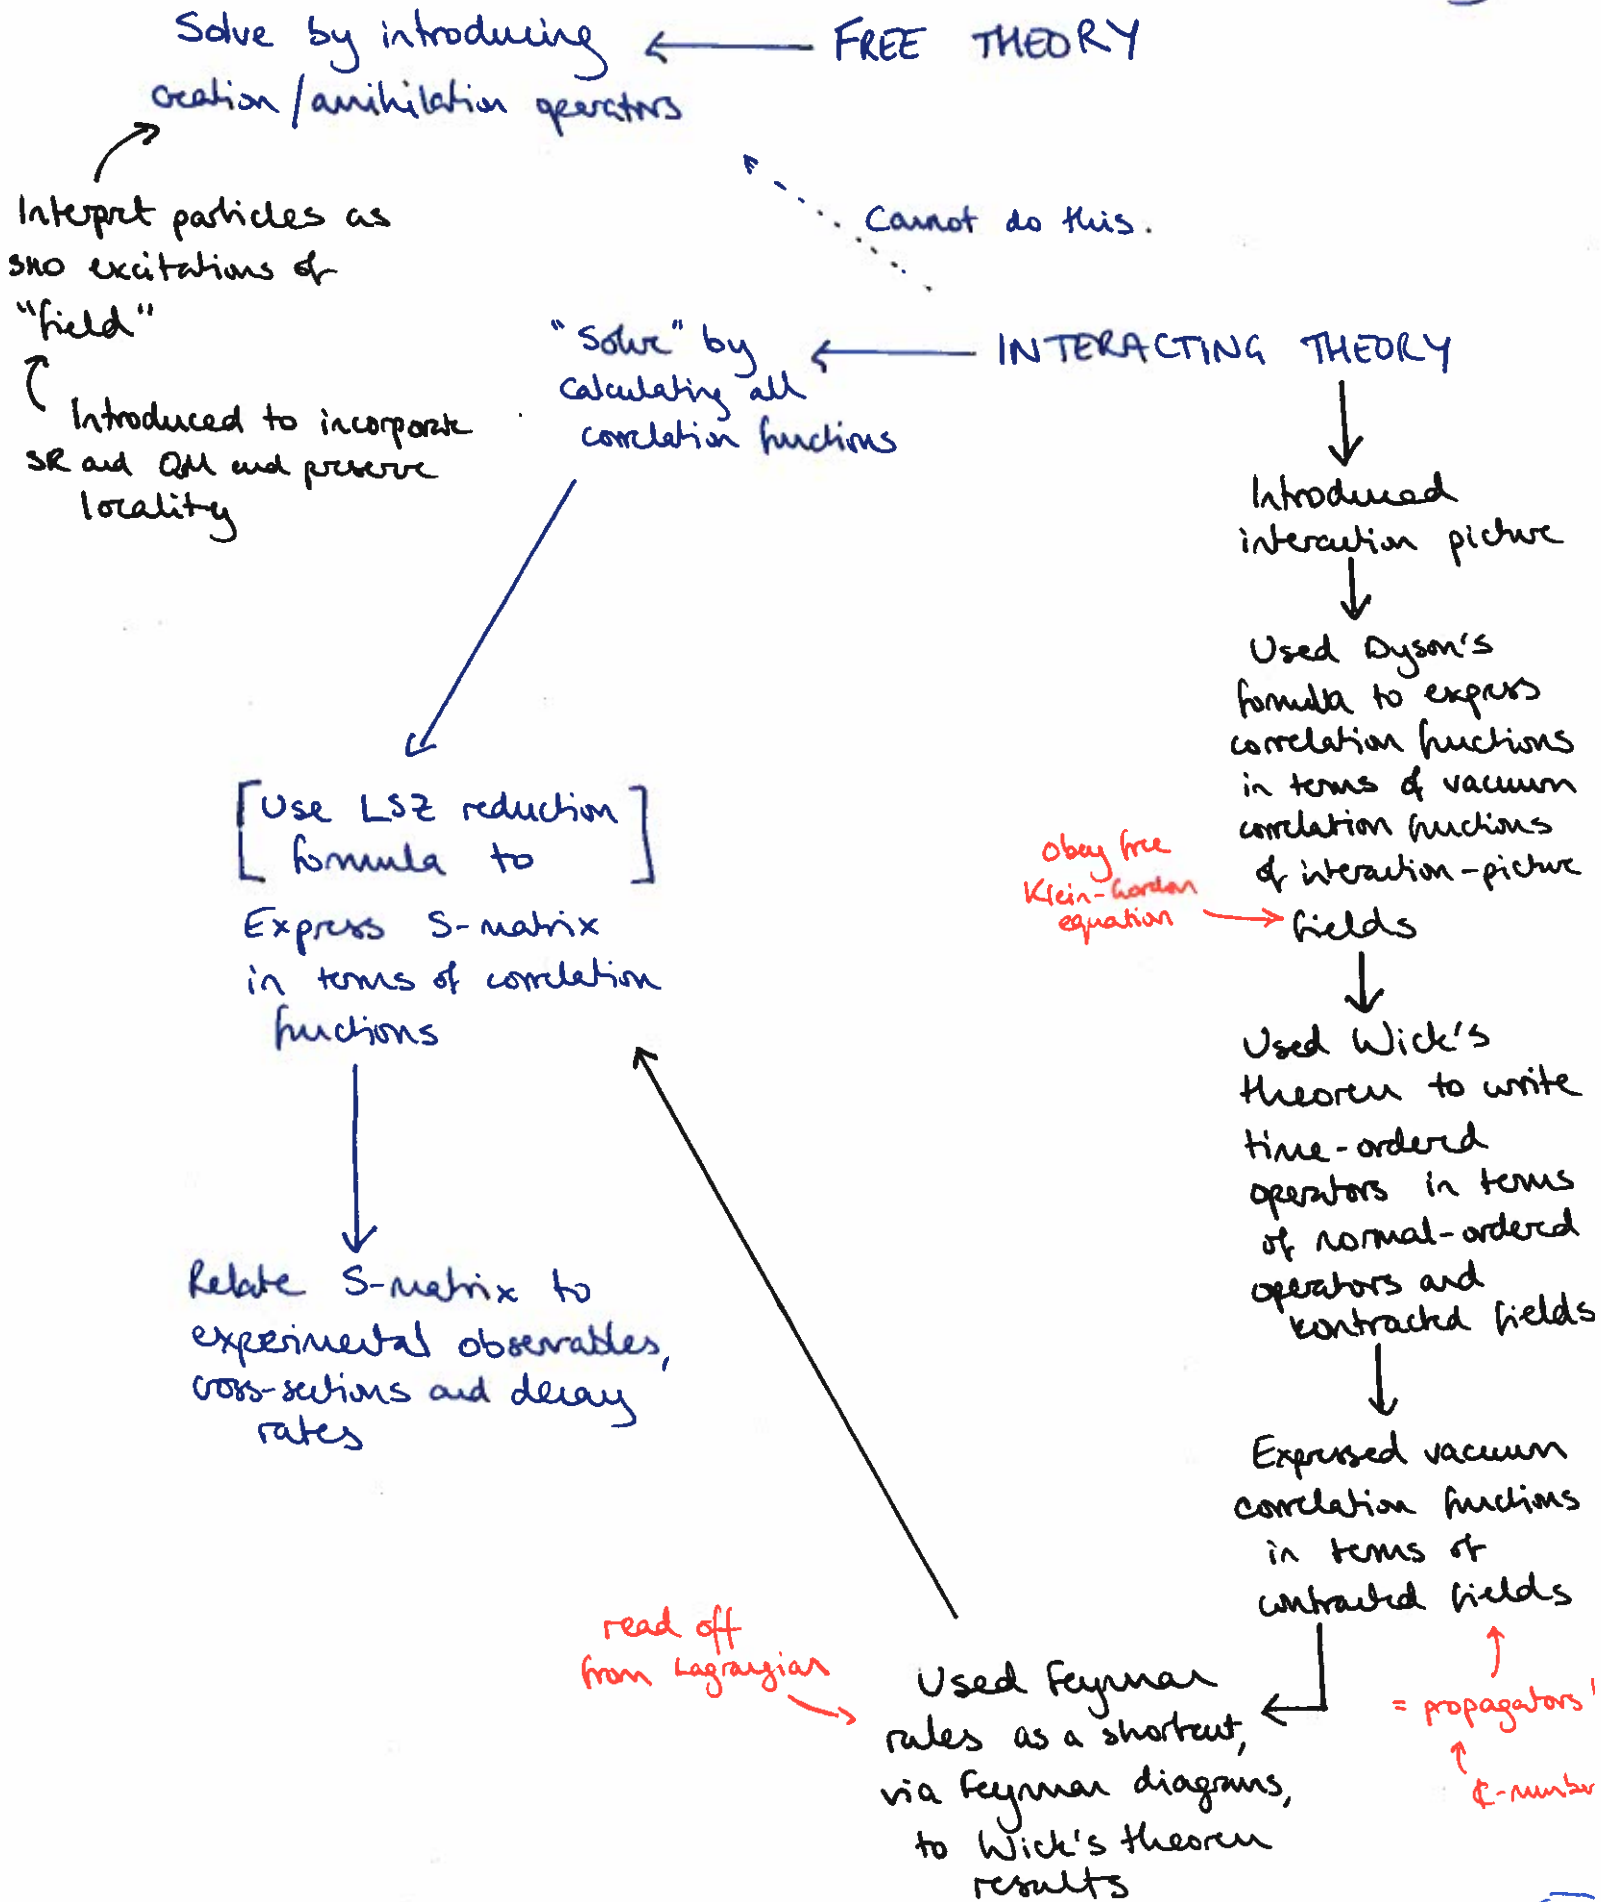 Solve by introducing ← FREE THEORY
creation/annihilation operators
Interpret particles as
SHO excitations of
"field"
Introduced to incorporate
SR and QM and preserve
locality
Cannot do this.
"Solve" by ← INTERACTING THEORY
calculating all
correlation functions
[Use LSZ reduction
formula to]
Express S-matrix
in terms of correlation
functions
Relate S-matrix to
experimental observables,
cross-sections and decay
rates
Introduced
interaction picture
Used Dyson's
formula to express
correlation functions
in terms of vacuum
correlation functions
of interaction-picture
fields
obey free
Klein-Gordon
equation
Used Wick's
theorem to write
time-ordered
operators in terms
of normal-ordered
operators and
kontracted fields
Expressed vacuum
correlation functions
in terms of
contracted fields
= propagators
ℂ-number
Used Feynman
rules as a shortcut,
via Feynman diagrams,
to Wick's theorem
results
read off
from Lagrangian